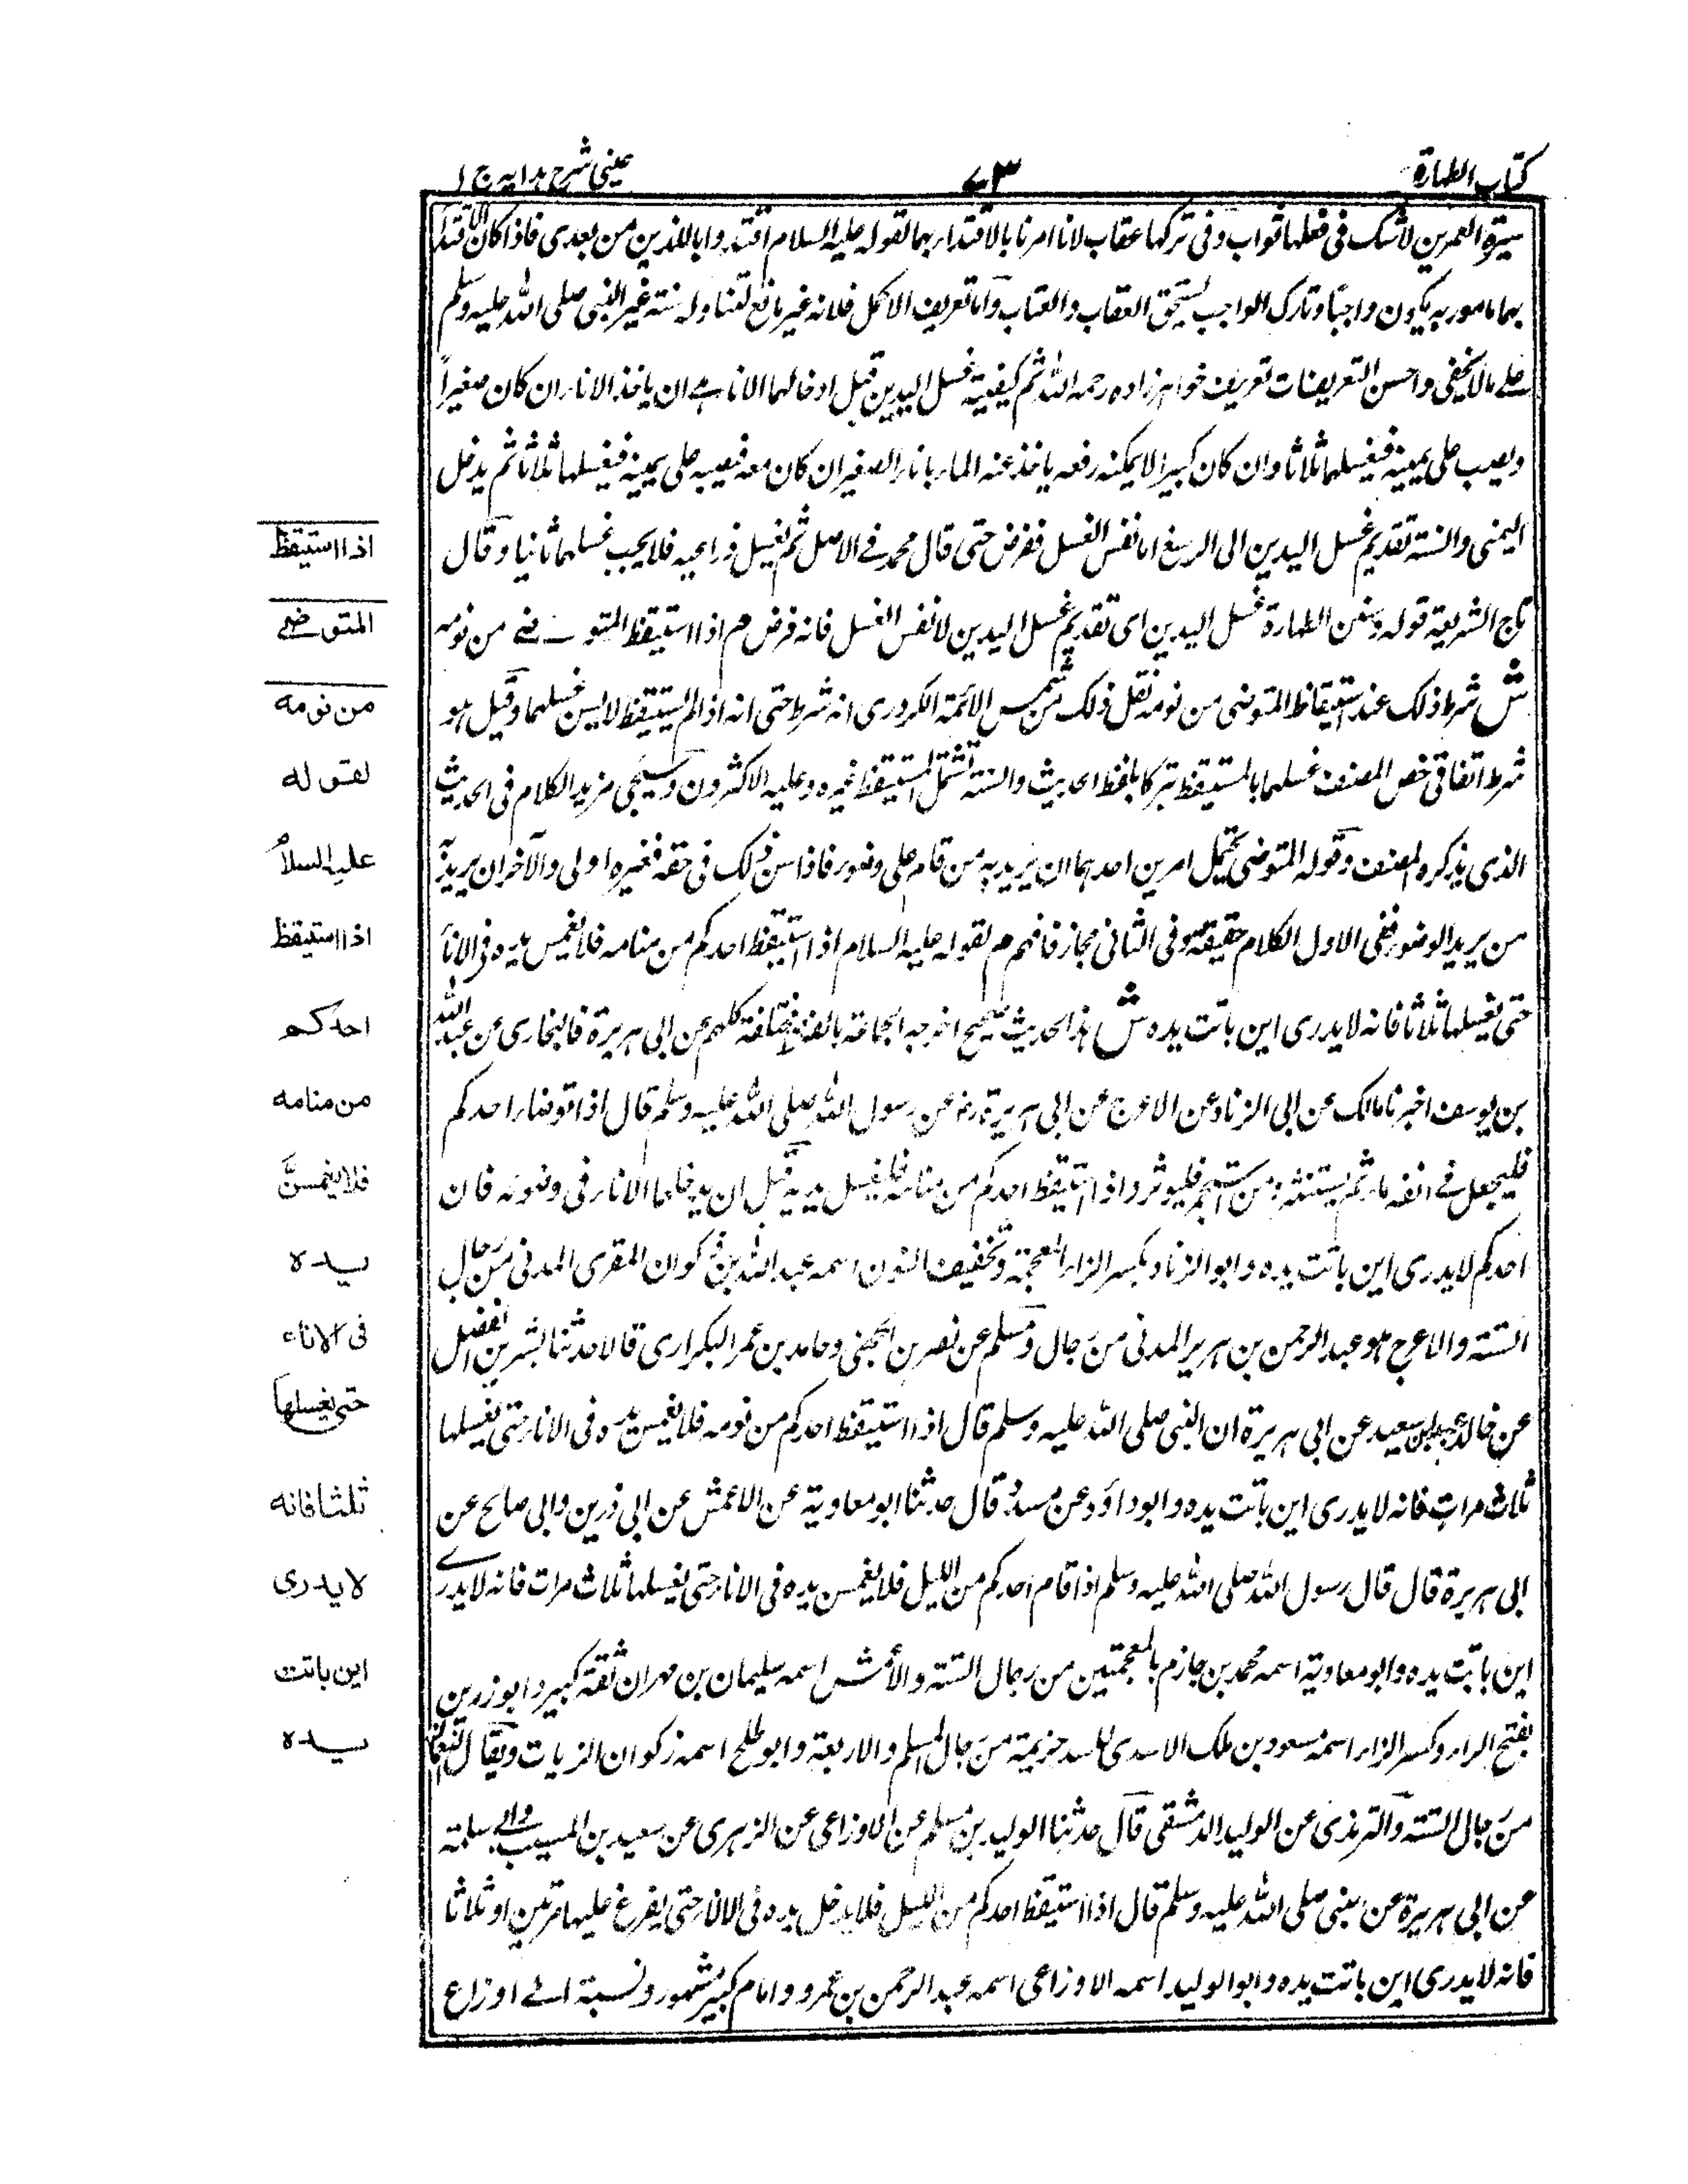 كتاب الطهارة
٧٣
عينى شرح هدايه ج ١
سيرة العمرين لاشك فى فعلها ثواب وفى تركها عقاب لانا امرنا بالاقتداء بهما لقوله عليه السلام اقتدوا باللذين من بعدى فاذا كان الاقتداء
بهما مامور به يكون واجبا وتارك الواجب يستحق العقاب والعتاب واما تعريف الاكمل فلانه غير مانع لتناوله سنة غير النبى صلى الله عليه وسلم
على مالا يخفى واحسن التعريفات تعريف خواهر زاده رحمه الله ثم كيفية غسل اليدين قبل ادخالهما الاناء هى ان ياخذ الاناء ان كان صغيرا
ويصب على يمينه فيغسلها ثلاثا وان كان كبيرا لا يمكنه رفعه ياخذ عنه الماء باناء الصغير ان كان معه فيصبه على يمينه فيغسلها ثلاثا ثم يدخل
اليمنى والسنة تقديم غسل اليدين الى الرسغ اما نفس الغسل ففرض حتى قال محمد فى الاصل ثم يغسل ذراعيه فلا يجب غسلهما ثانيا وقال
تاج الشريعة قوله وسنن الطهارة غسل اليدين اى تقديم غسل اليدين لا نفس الغسل فانه فرض م اذا استيقظ المتوضى من نومه
ش شرط ذلك عند استيقاظ المتوضى من نومه نقل ذلك من شمس الائمة الكردرى انه شرط حتى انه اذا لم يستيقظ لا يسن غسلهما وقيل هو
شرط اتفاقى خص المصنف غسلهما بالمستيقظ تبركا بلفظ الحديث والسنة تشتمل المستيقظ غيره وعليه الاكثرون وسيجى مزيد الكلام فى الحديث
الذى يذكره المصنف وقوله المتوضى يحتمل امرين احدهما ان يريد به من قام على وضوء فاذا سن ذلك فى حقه فغيره اولى والآخر ان يريد به
من يريد الوضوء ففى الاول الكلام حقيقة وفى الثانى مجاز فافهم م لقوله عليه السلام اذا استيقظ احدكم من منامه فلا يغمس يده فى الاناء
حتى يغسلها ثلاثا فانه لا يدرى اين باتت يده ش هذا الحديث صحيح اخرجه الجماعة بالفاظ مختلفة كلهم عن ابى هريرة فالبخارى عن عبد الله
بن يوسف اخبرنا مالك عن ابى الزناد عن الاعرج عن ابى هريرة رضـ عن رسول الله صلى الله عليه وسلم قال اذا توضاء احدكم
فليجعل فى انفه ماء ثم يستنثر ومن استجمر فليوتر واذا استيقظ احدكم من منامه فليغسل يديه قبل ان يدخلهما الاناء فى وضوئه فان
احدكم لا يدرى اين باتت يده وابو الزناد بكسر الزاء المعجمة وتخفيف النون اسمه عبد الله بن ذكوان المقرى المدنى من رجال
الستة والاعرج هو عبد الرحمن بن هرير المدنى من رجال ومسلم عن نصر بن الجهنى وحامد بن عمر البكرارى قالا حدثنا بشر بن المفضل
عن خالد عن سعيد عن ابى هريرة ان النبى صلى الله عليه وسلم قال اذا استيقظ احدكم من نومه فلا يغمس يده فى الاناء حتى يغسلها
ثلاث مرات فانه لا يدرى اين باتت يده وابو داؤد عن مسدد قال حدثنا ابو معاوية عن الاعمش عن ابى ذرين وابى صالح عن
ابى هريرة قال قال رسول الله صلى الله عليه وسلم اذا قام احدكم من الليل فلا يغمس يده فى الاناء حتى يغسلها ثلاث مرات فانه لا يدرى
اين باتت يده وابو معاوية اسمه محمد بن جازم بالمعجمتين من رجال الستة والأعمش اسمه سليمان بن مهران ثقة كبير وابو زرين
بفتح الراء وكسر الزاء اسمه مسعود بن ملك الاسدى اسد خزيمة من رجال المسلم والاربعة وابو طلح اسمه زكوان الزيات ويقال السمان
من رجال الستة والترمذى عن الوليد الدمشقى قال حدثنا الوليد بن مسلم عن الاوزاعى عن الزهرى عن سعيد بن المسيب وابى سلمة
عن ابى هريرة عن نبى صلى الله عليه وسلم قال اذا استيقظ احدكم من الليل فلا يدخل يده فى الاناء حتى يفرغ عليها مرتين او ثلاثا
فانه لا يدرى اين باتت يده وابو الوليد اسمه الاوزاعى اسمه عبد الرحمن بن عمرو وامام كبير مشهور ونسبة الى اوزاع
اذا استيقظ
المتوضى
من نومه
لقوله
عليه السلام
اذا استيقظ
احدكم
من منامه
فلا يغمسنّ
يده
فى الاناء
حتى يغسلها
ثلثا فانه
لا يدرى
اين باتت
يده